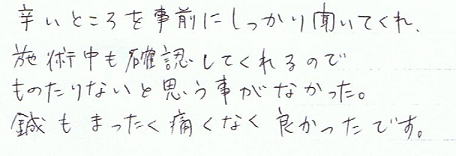 辛いところを事前にしっかり聞いてくれ、
施術中も確認してくれるので
ものたりないと思う事がなかった。
鍼もまったく痛くなく良かったです。